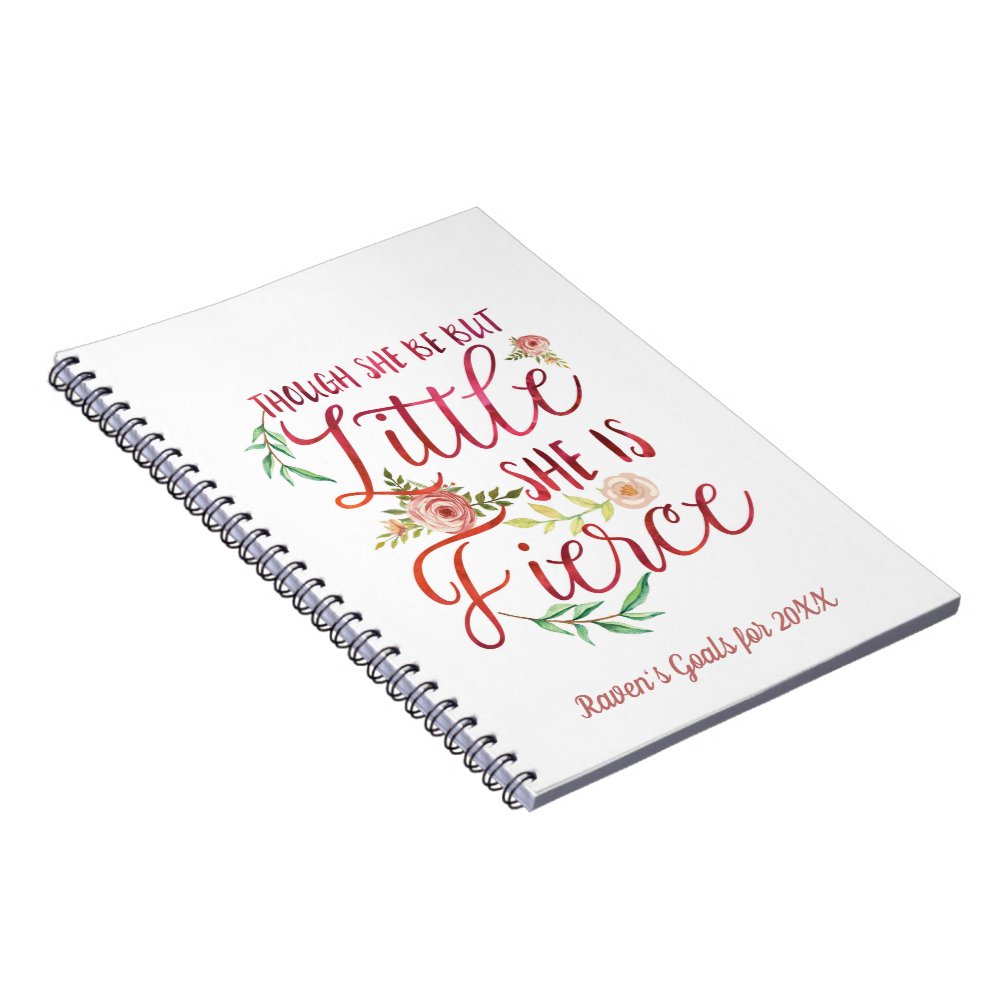 THOUGH SHE BE BUT
Little
SHE IS
Fierce
Raven's Goals for 20XX